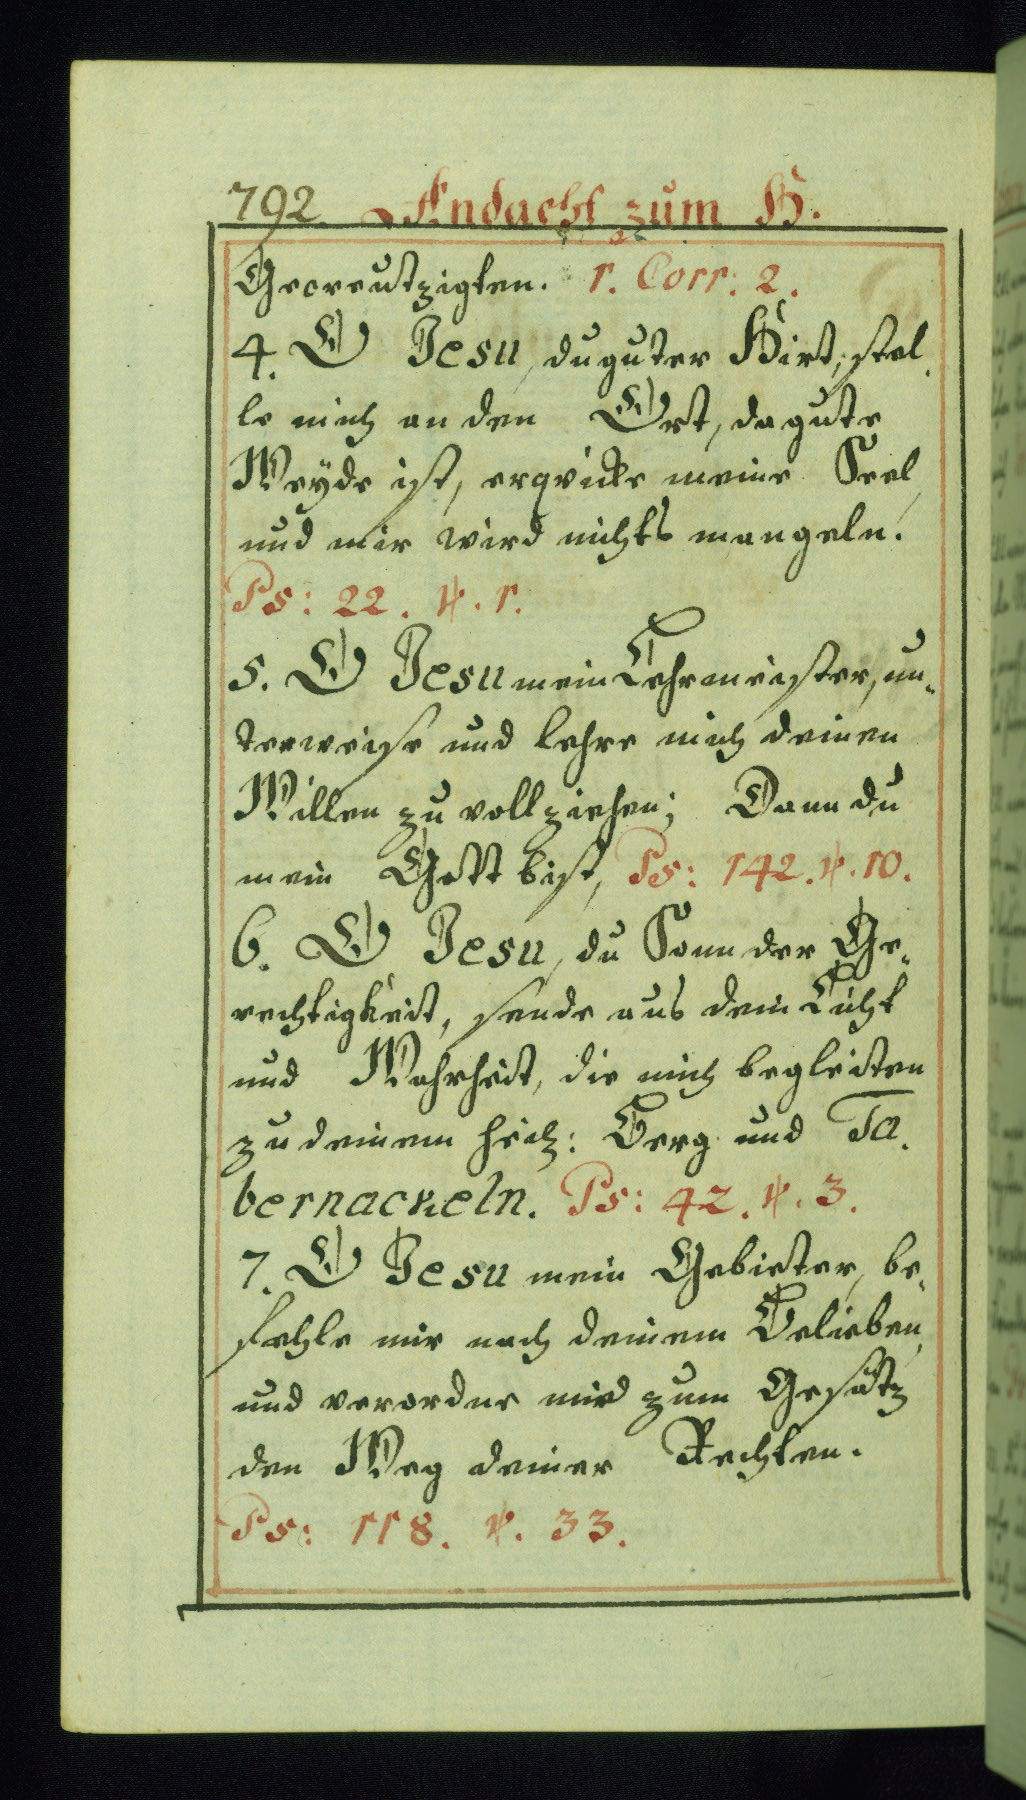 792. Andacht zum H.
Gecreutzigten. 1. Corr: 2.
4. O Jesu, du guter Hirt, stel„
le mich an den Ort, da gute
Weyde ist, erqvicke meine Seel,
und mir wird nichts mangeln.
Ps: 22. ꝟ. 1.
5. O Jesu mein Lehrmeister, un„
terweise und lehre mich deinen
Willen zu vollziehen; Dann du
mein Gott bist, Ps: 142. ꝟ. 10.
6. O Jesu, du Sonn der Ge„
rechtigkeit, sende aus dein Licht
und Wahrheit, die mich begleiten
zu deinem heil: Berg und Ta„
bernackeln. Ps: 42. ꝟ. 3.
7. O Jesu mein Gebieter, be„
fehle mir nach deinem Belieben,
und verordne mir zum Gesätz
den Weg deiner Rechten.
Ps: 118. ꝟ. 33.